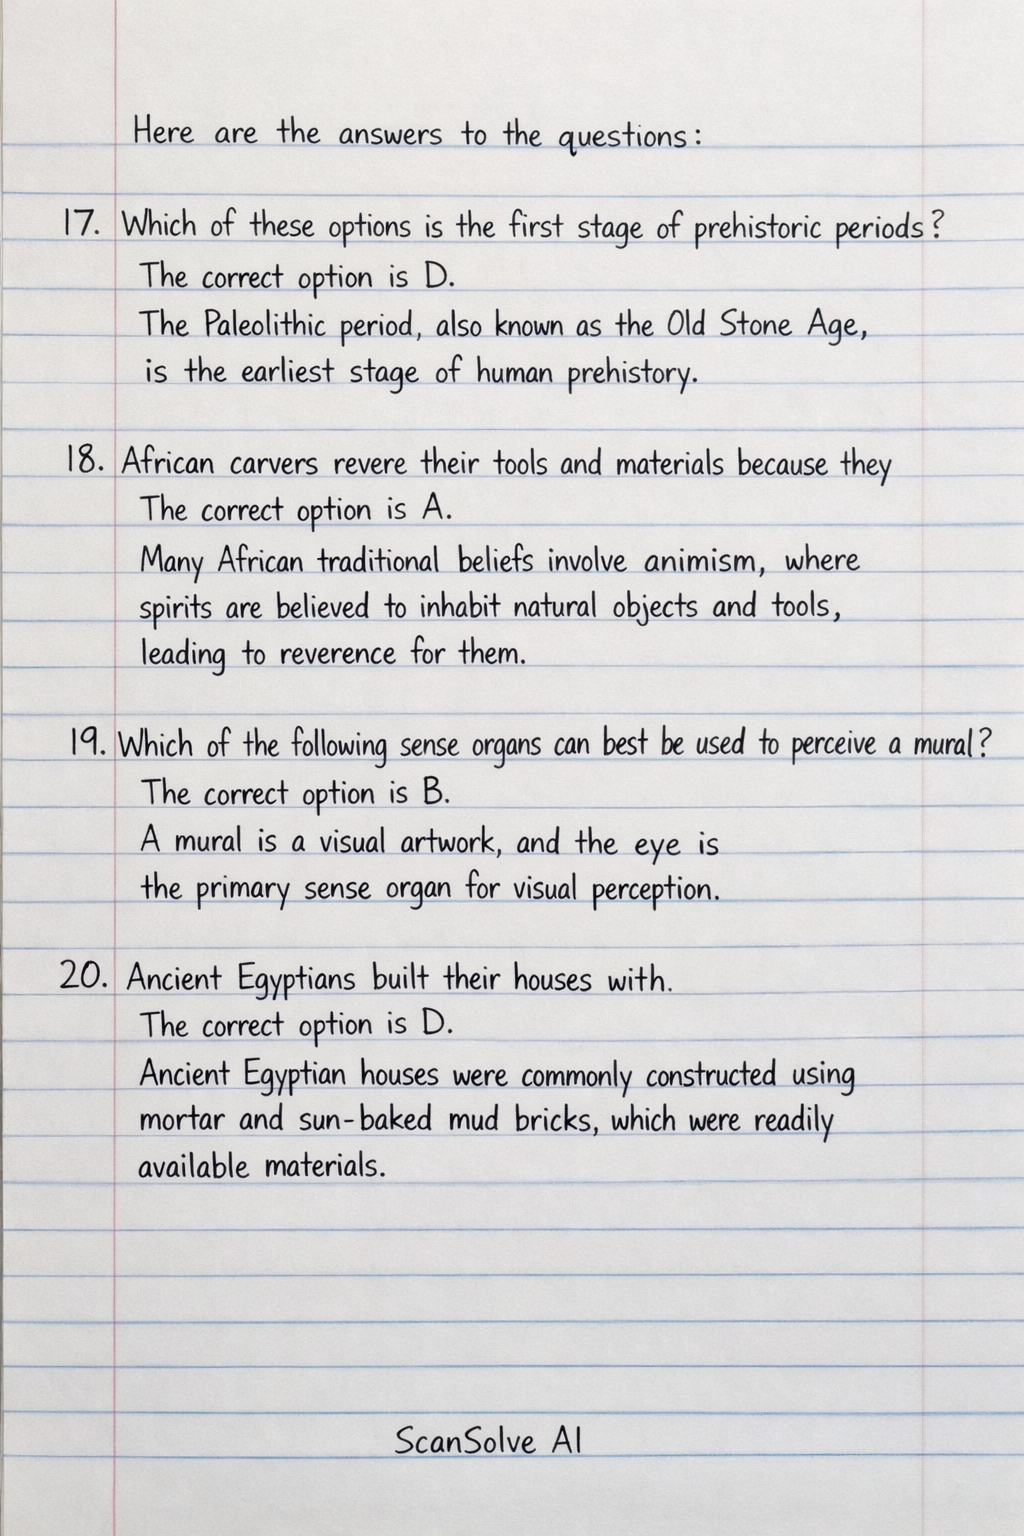 Here are the answers to the questions:
17. Which of these options is the first stage of prehistoric periods?
The correct option is D.
The Paleolithic period, also known as the Old Stone Age,
is the earliest stage of human prehistory.
18. African carvers revere their tools and materials because they
The correct option is A.
Many African traditional beliefs involve animism, where
spirits are believed to inhabit natural objects and tools,
leading to reverence for them.
19. Which of the following sense organs can best be used to perceive a mural?
The correct option is B.
A mural is a visual artwork, and the eye is
the primary sense organ for visual perception.
20. Ancient Egyptians built their houses with.
The correct option is D.
Ancient Egyptian houses were commonly constructed using
mortar and sun-baked mud bricks, which were readily
available materials.
ScanSolve AI